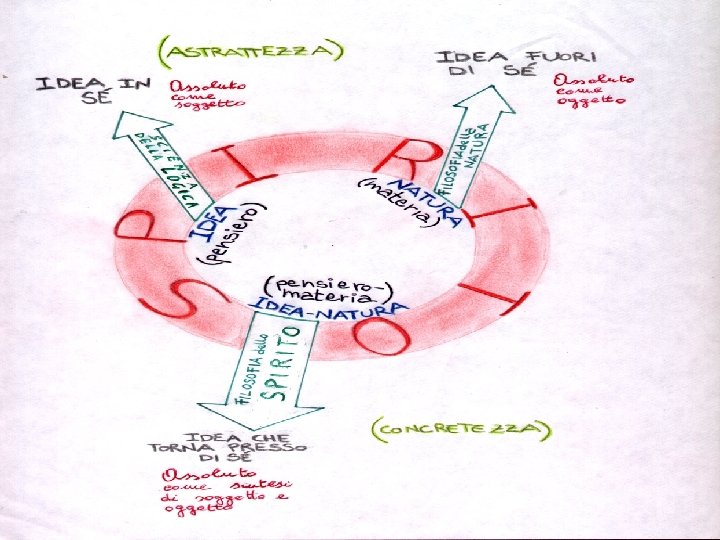 (ASTRATTEZZA)
IDEA IN
SÉ
Assoluto
come
soggetto
IDEA FUORI
DI SÉ
Assoluto
come
oggetto
SCIENZA
DELLA LOGICA
FILOSOFIA della
NATURA
SPIRITO
IDEA
(pensiero)
NATURA
(materia)
(pensiero-
materia)
IDEA-NATURA
FILOSOFIA dello
SPIRITO
IDEA CHE
TORNA PRESSO
DI SÉ
Assoluto
come sintesi
di soggetto e
oggetto
(CONCRETEZZA)